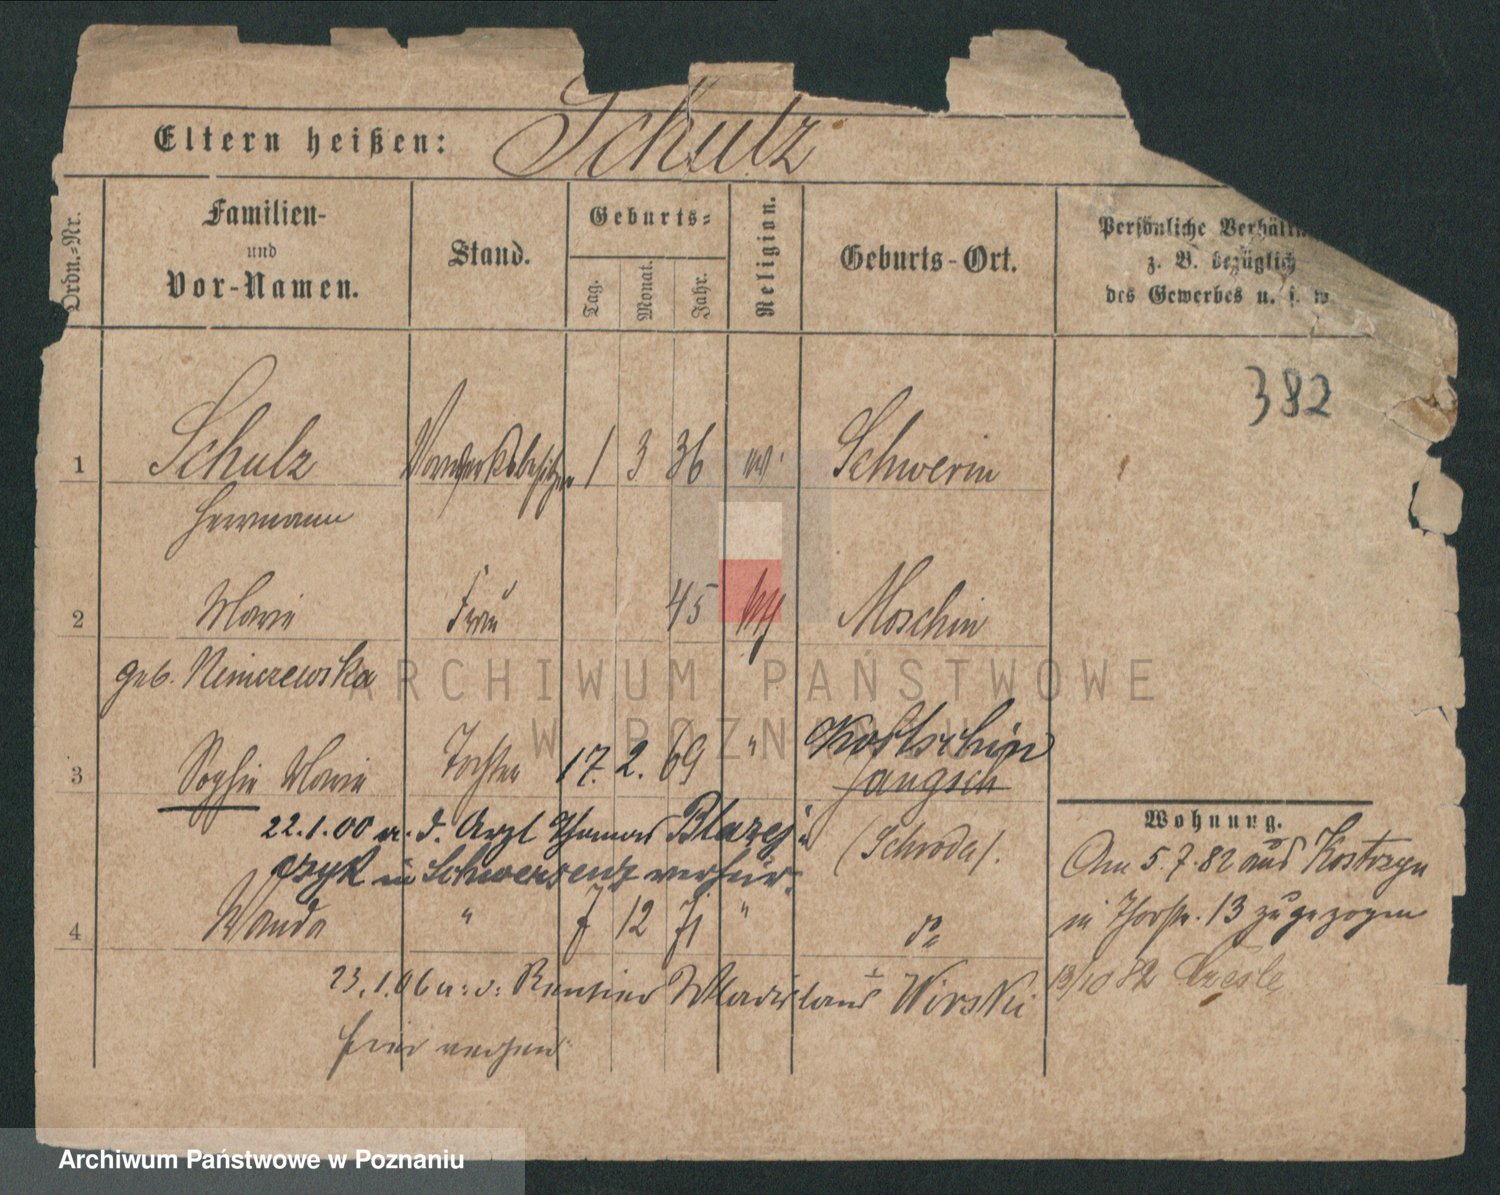 Eltern heißen: Schulz
Ordn.-Nr.
Familien-
und
Vor-Namen.
Stand.
Geburts-
Tag.
Monat.
Jahr.
Religion.
Geburts-Ort.
Persönliche Verhältn
z. B. bezüglich
des Gewerbes u. s. w.
382
1 Schulz Vorwerksbesitzer 1 3 36 Schwerin
Herrmann
2 Marie Frau 45 Moschin
geb. Niemczewska
ARCHIWUM PAŃSTWOWE
W POZNANIU
3 Sophie Marie Tochter 17. 2. 69 " Kostschin
22.1.00 a. d. Arzt Thomas Blazej
czyk in Schwersenz verheir.
(Schroda).
4 Wanda " 7 12 71 " do
23.1.06 a. d. Rentier Wladislaus Wirski
hier
Wohnung.
Am 5.7.82 aus Kostrzyn
in Thorstr. 13 zugezogen
13/10 82
Archiwum Państwowe w Poznaniu